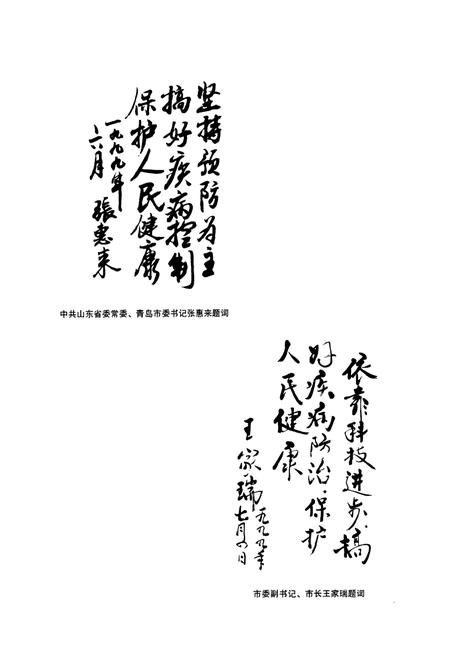 坚持预防为主
搞好疾病控制
保护人民健康
一九九九年
六月 張惠来
中共山东省委常委、青岛市委书记张惠来题词
依靠科技进步.搞
好疾病防治.保护
人民健康
王家瑞 一九九九年
七月六日
市委副书记、市长王家瑞题词